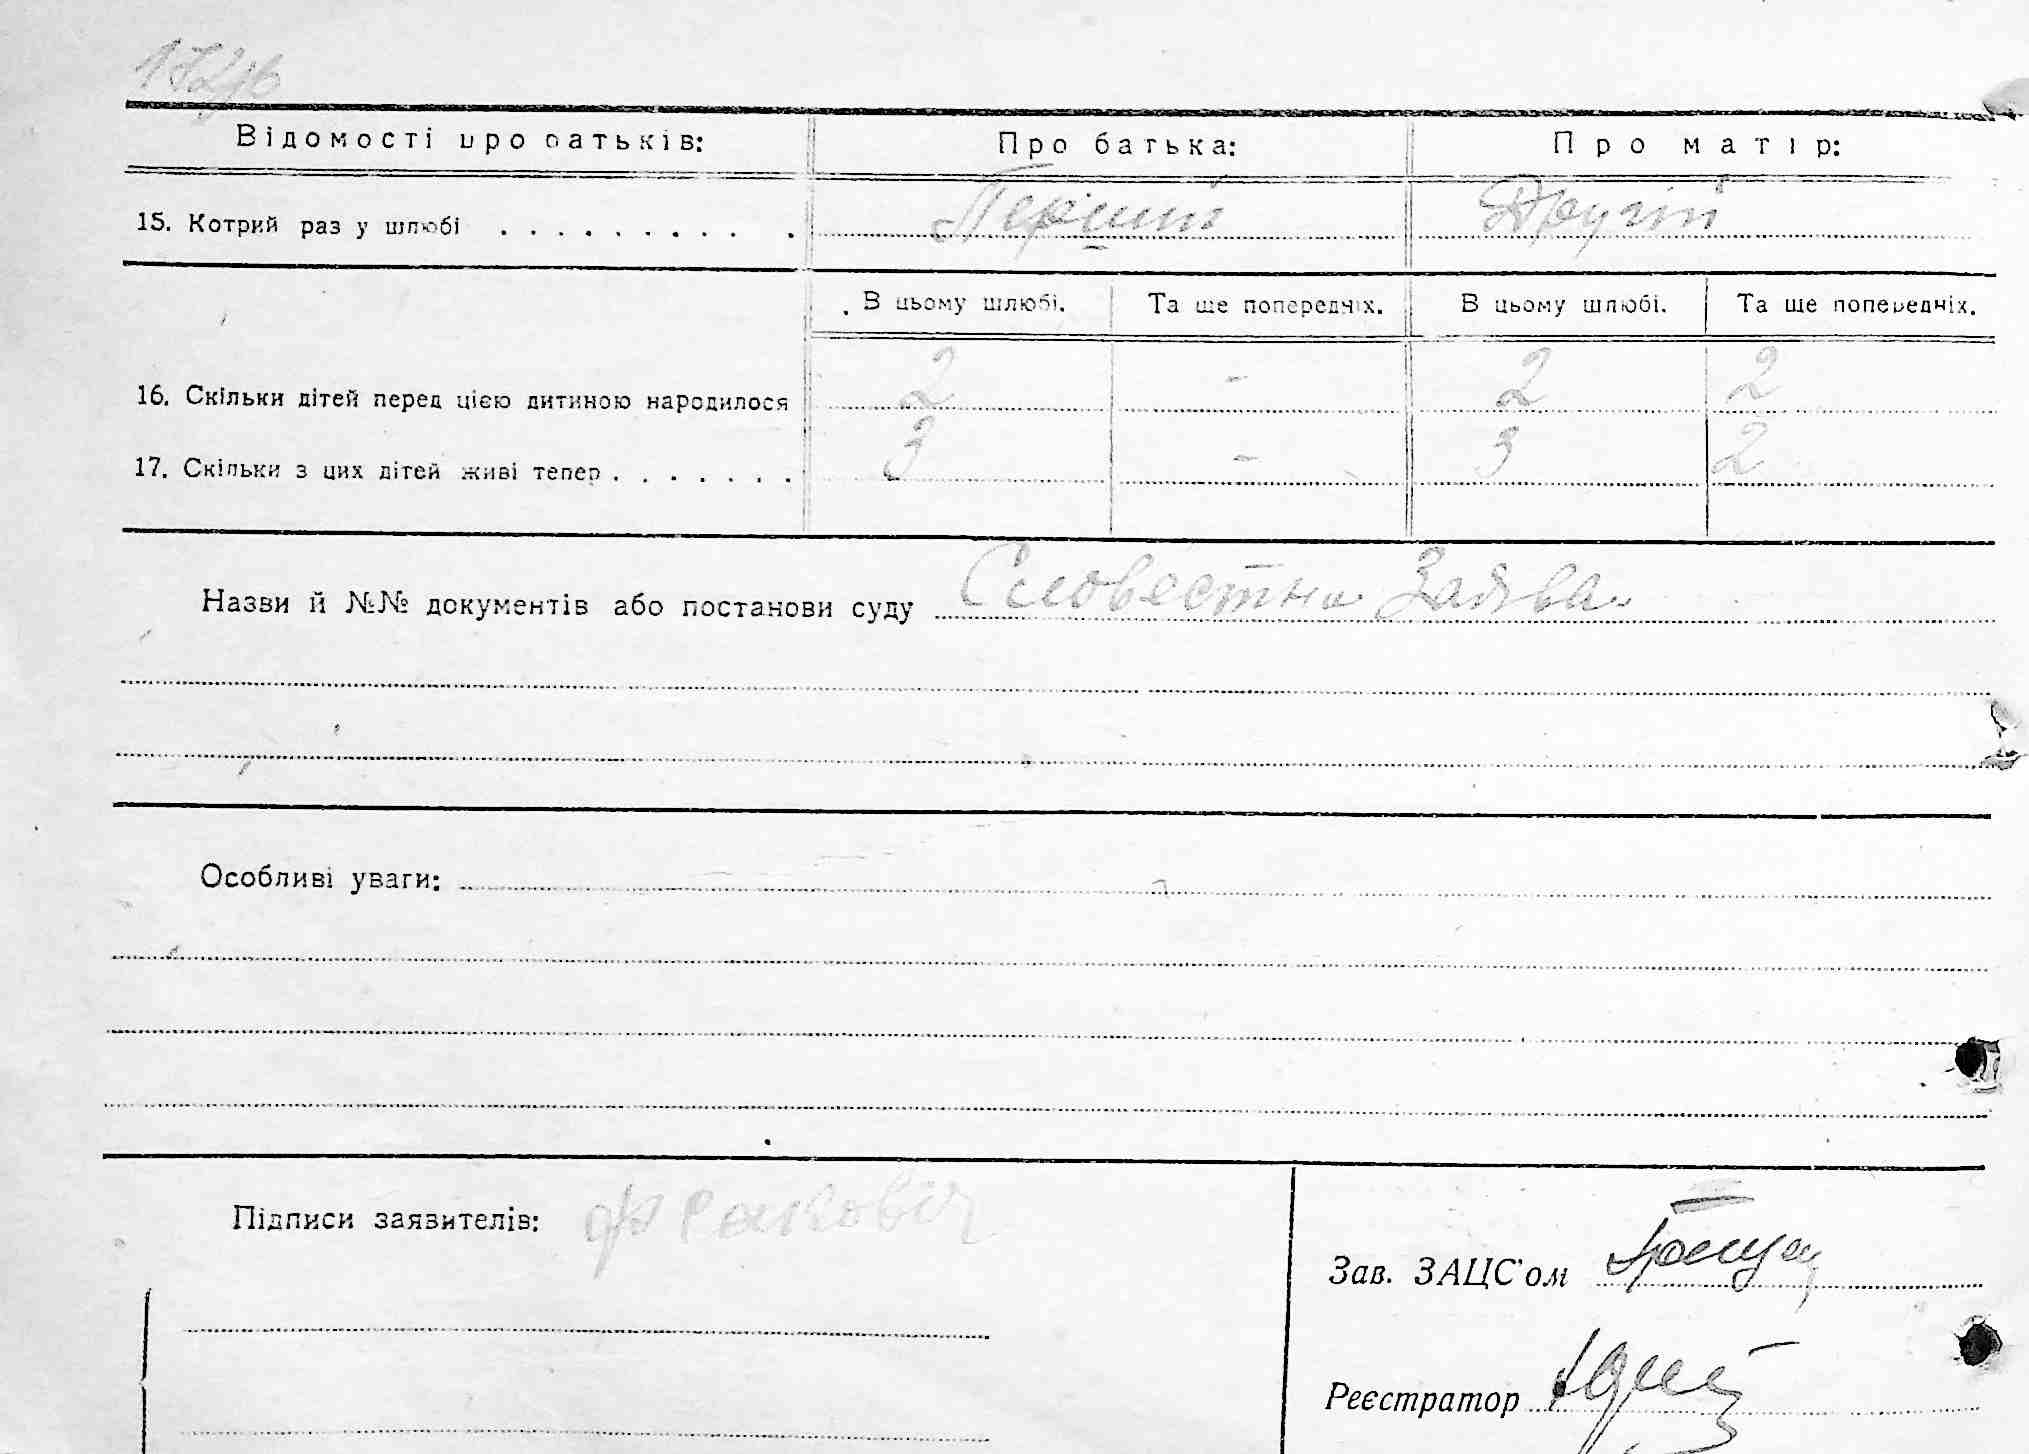 Відомості про батьків: Про батька: Про матір:
15. Котрий раз у шлюбі . . . . . . . . . . Перший Другий
В цьому шлюбі. Та ще попередніх. В цьому шлюбі. Та ще попередніх.
16. Скільки дітей перед цією дитиною народилося 2 - 2 2
17. Скільки з цих дітей живі тепер . . . . . . . 3 - 3 2
Назви й №№ документів або постанови суду Словестна Заява.
Особливі уваги:
Підписи заявителів:
Зав. ЗАЦС'ом
Реєстратор